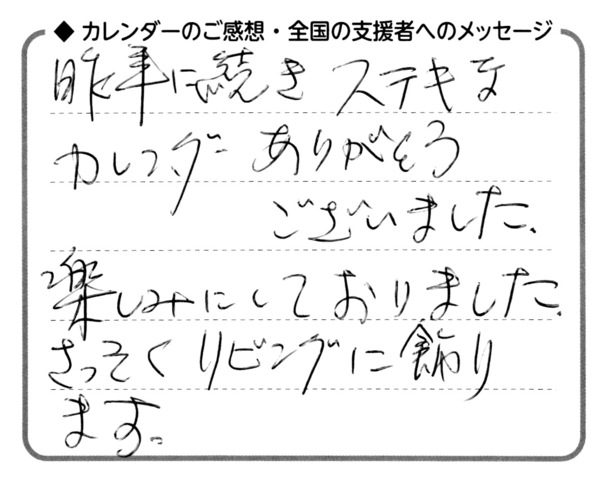 ◆ カレンダーのご感想・全国の支援者へのメッセージ
昨年に続き ステキな
カレンダー ありがとう
ございました.
楽しみにしておりました.
さっそく リビングに飾り
ます。